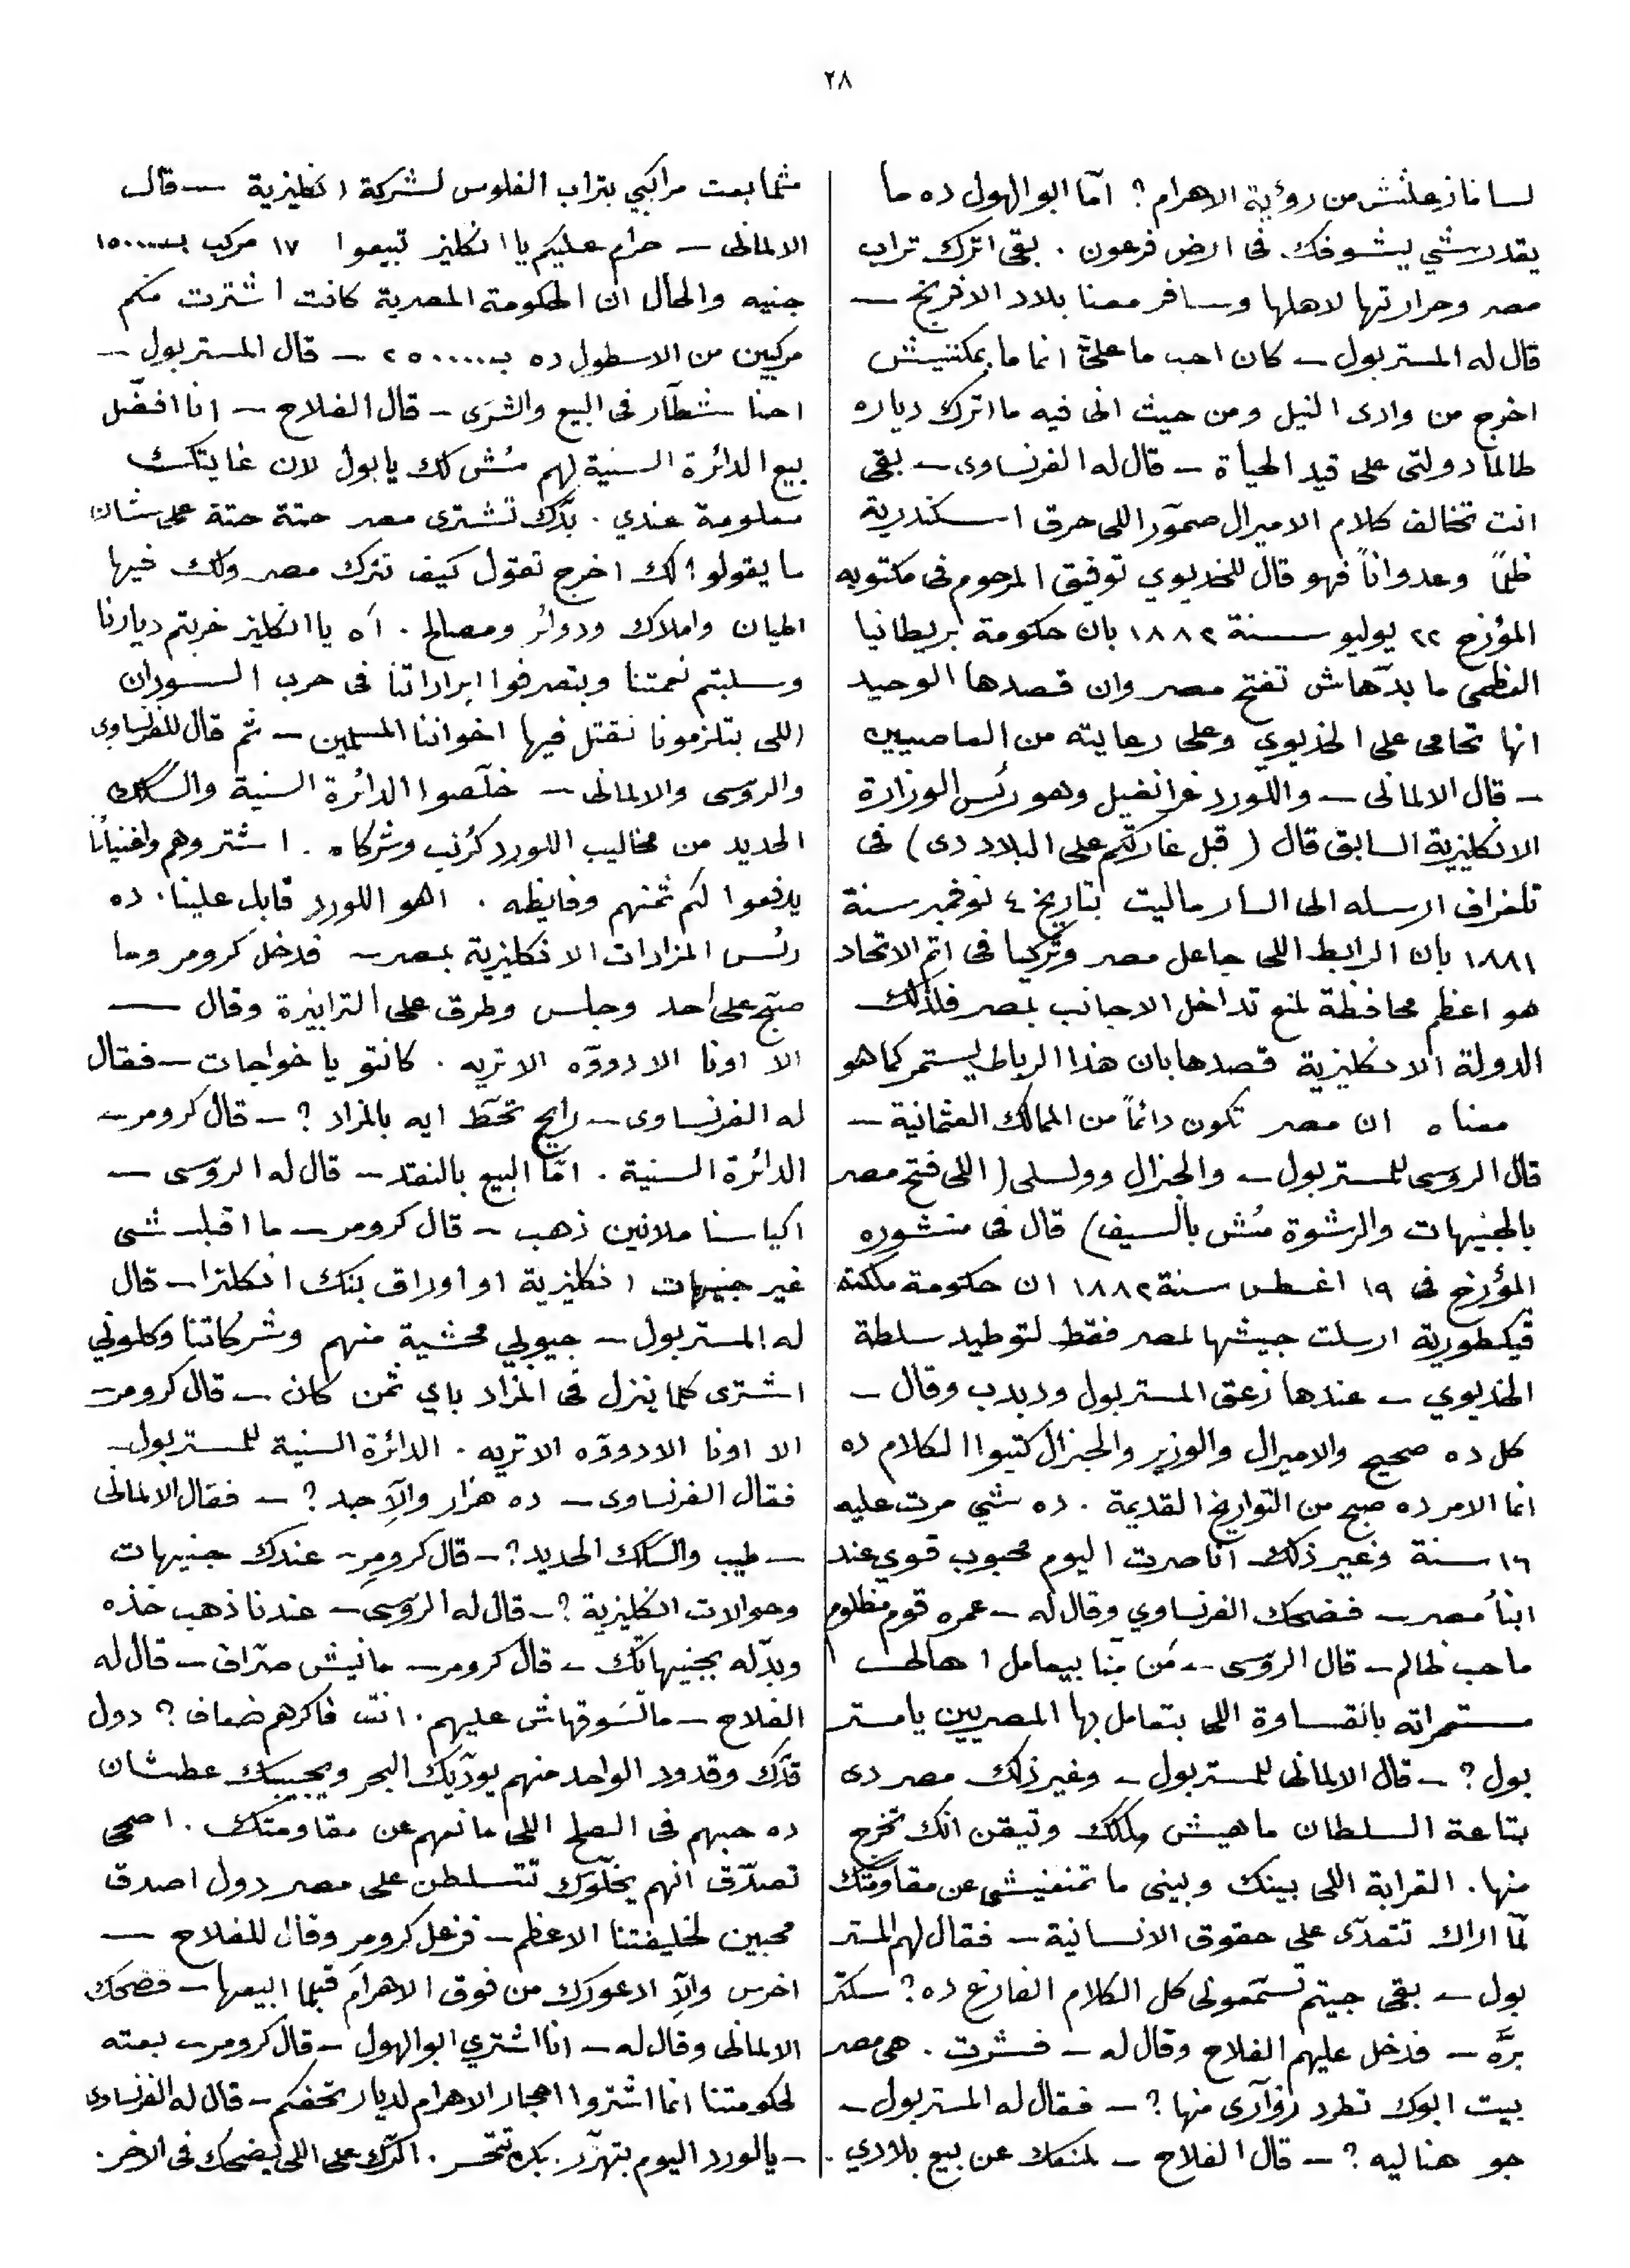 ٢٨
لسا مازعلتش من رؤية الاهرام؟ امّا ابو الهول ده ما
يقدرشي يشوفك فى ارض فرعون. بقى اترك تراب
مصر وحرارتها لاهلها وسافر معنا بلاد الافرنج —
قال له المستر بول — كان احب ما علىّ انما ما يمكننيش
اخرج من وادى النيل ومن حيث انى فيه ما اترك دياره
طالما دولتى على قيد الحياة — قال له الفرنساوى — بقى
انت تخالف كلام الاميرال صموّر اللى حرق اسكندرية
ظلماً وعدواناً فهو قال للخديوي توفيق المرحوم فى مكتوبه
المؤرخ ٢٢ يوليو سنة ١٨٨٢ بان حكومة بريطانيا
العظمى ما بدّهاش تفتح مصر وان قصدها الوحيد
انها تحامى على الخديوي وعلى رعايته من العاصيين
— قال الالمانى — واللورد غرانفيل وهو رئس الوزارة
الانكليزية السابق قال (قبل غارتكم على البلاد دى) فى
تلغراف ارسله الى السار ماليت بتاريخ ٤ نوفمبر سنة
١٨٨١ بان الرابط اللى جاعل مصر وتركيا فى اتم الاتحاد
هو اعظم محافظة لمنع تداخل الاجانب بمصر فلذلك
الدولة الانكليزية قصدها بان هذا الرباط يستمر كما هو
معناه ان مصر تكون دائماً من الممالك العثمانية —
قال الروسى للمستر بول — والجنرال وولسلى (اللى فتح مصر
بالجنيهات والرشوة مُش بالسيف) قال فى منشوره
المؤرخ فى ١٩ اغسطس سنة ١٨٨٢ ان حكومة ملكته
ڤيكطورية ارسلت جيشها لمصر فقط لتوطيد سلطة
الخديوي — عندها زعق المستر بول ودبدب وقال —
كل ده صحيح والاميرال والوزير والجنرال كتبوا الكلام ده
انما الامر ده صبح من التواريخ القديمة. ده شي مرت عليه
١٦ سنة وغير ذلك انا صرت اليوم محبوب قوي عند
ابناء مصر — فضحك الفرنساوي وقال له — عمره قوم مظلوم
ما حب ظالم — قال الروسى — مَن منّا بيعامل اهالى
مستعمراته بالقساوة اللى بتعامل بها المصريين يا مستر
بول؟ — قال الالمانى للمستر بول — وغير ذلك مصر دى
بتاعة السلطان ماهيش ملكك وتيقن انك تخرج
منها. القرابة اللى بينك وبينى ما تمنعنيشى عن مقاومتك
لمّا اراك تتعدّى على حقوق الانسانية — فقال لهم المستر
بول — بقى جيتم تسمّعونى كل الكلام الفارغ ده؟ سكتر
برّه — فدخل عليهم الفلاح وقال له — فشرت. هى مصر
بيت ابوك تطرد زوّارى منها؟ — فقال له المستر بول —
جو هنا ليه؟ — قال الفلاح — لمنعك عن بيع بلادي.
مثما بعت مراكبي بتراب الفلوس لشركة انكليزية — قال
الالمانى — حرام عليكم يا انكليز تبيعوا ١٧ مركب بـ ١٥٠٠٠٠
جنيه والحال ان الحكومة المصرية كانت اشترت منكم
مركبين من الاسطول ده بـ ٢٥٠٠٠٠ — قال المستر بول —
احنا شطّار فى البيع والشرَى — قال الفلاح — انا افضّل
بيع الدائرة السنية لهم مُش لك يا بول لان غايتك
معلومة عندي. بدّك تشترى مصر حتة حتة على شان
ما يقولوا لك اخرج تقول كيف نترك مصر ولك فيها
اطيان واملاك ودوائر ومصالح. آه يا انكليز خربتم ديارنا
وسلبتم نعمتنا وبتصرفوا ايراداتنا فى حرب السودان
اللى بتلزمونا نقتل فيها اخواننا المسلمين — ثم قال للفرنساوى
والروّسى والالمانى — خلّصوا الدائرة السنية والسكك
الحديد من مخاليب اللورد كُرنب وشركاه. اشتروهم واغنيائنا
يدفعوا لكم ثمنهم وفايظه. اهو اللورد قابل علينا. ده
رئس المزادات الانكليزية بمصر — فدخل كرومر وما
صبّح على احد وجلس وطرق على الترابيزة وقال —
الا اونا الا دووّه الا تريه. كانتو يا خواجات — فقال
له الفرنساوى — رايح تحّط ايه بالمزاد؟ — قال كرومر —
الدائرة السنية. امّا البيع بالنقد — قال له الروّسى —
اكياسنا ملانين ذهب — قال كرومر — ما اقبل شى
غير جنيهات انكليزية او اوراق بنك انكلترا — قال
له المستر بول — جيوبي محشية منهم وشركاتنا وكلوني
اشترى كلما ينزل فى المزاد باي ثمن كان — قال كرومر —
الا اونا الا دووّه الا تريه. الدائرة السنية للمستر بول —
فقال الفرنساوى — ده هزار والاّ جد؟ — فقال الالمانى
— طيب والسكك الحديد؟ — قال كرومر — عندك جنيهات
وحوالات انكليزية؟ — قال له الروّسى — عندنا ذهب خذه
وبدّله بجنيهاتك — قال كرومر — مانيش صرّاف — قال له
الفلاح — ما تسوقهاش عليهم. انت فاكرهم ضعاف؟ دول
قدّك وقدود الواحد منهم يودّيك البحر ويجيبك عطشان
ده حبهم فى الصلح اللى مانعهم عن مقاومتك. اصحى
تصدّق انهم يخلّوك تتسلطن على مصر دول اصدق
محبين لخليفتنا الاعظم — فزعل كرومر وقال للفلاح —
اخرس والاّ ادعورك من فوق الاهرام قبلما ابيعها — فضحك
الالمانى وقال له — انا اشتري ابو الهول — قال كرومر — بعته
لحكومتنا انما اشتروا احجار الاهرام لديار تحفكم — قال له الفرنساوى
— يا لورد اليوم بتهزّر. بكره تتحسر. اكرّك على اللى يضحك فى الاخر.